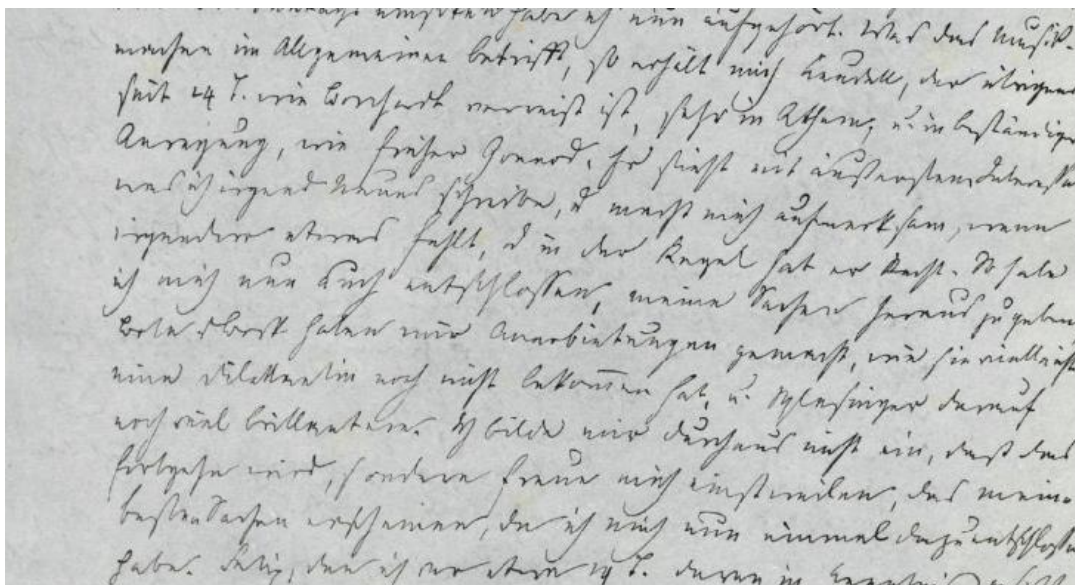 habe ich nun aufgehört. Was das Musik-
machen im Allgemeinen betrifft, so erhält mich Keudell, der übrigens
seit 14 T. wie Borchardt verreist ist, sehr in Athem, u. in beständiger
Anregung, wie früher Gounod. Er sieht mit äußerstem Interesse
was ich irgend Neues schreibe, u macht mich aufmerksam, wenn
irgendwo etwas fehlt, u in der Regel hat er Recht. So habe
ich mich nun auch entschlossen, meine Sachen herauszugeben,
Bote u Bock haben mir Anerbietungen gemacht, wie sie vielleicht
eine Dilettantin noch nicht bekommen hat, u. Schlesinger darauf
noch viel brillantere. Ich bilde mir durchaus nicht ein, daß das
fortgehn wird, sondern freue mich einstweilen, das meine
besten Sachen erscheinen, da ich mich nun einmal dazu entschlossen
habe. Felix, den ich vor etwa 14 T. davon in